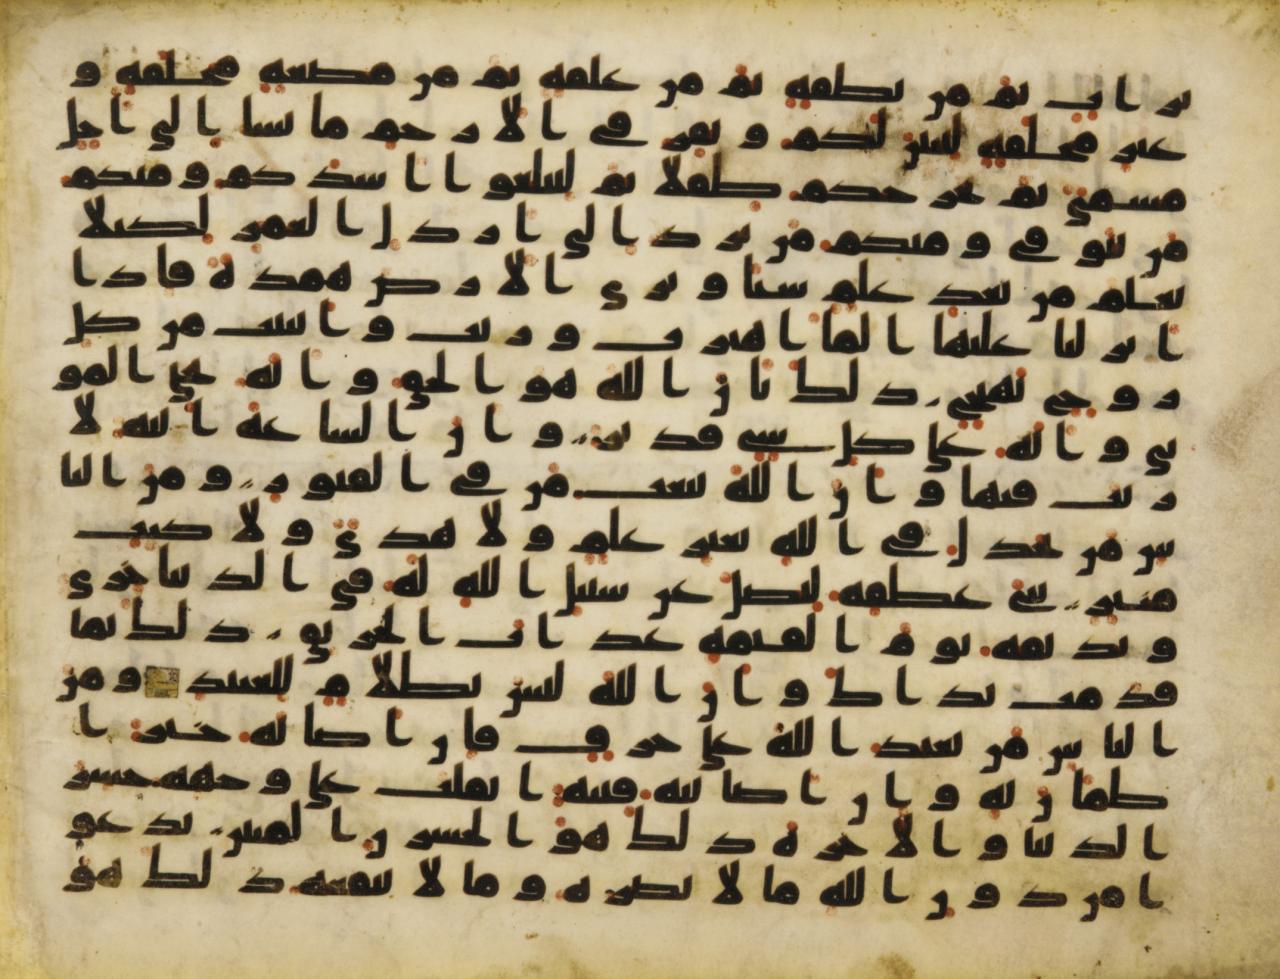 تراب ثم من نطفة ثم من علقة ثم من مضغة مخلقة و
غير مخلقة لنبين لكم ونقر في الارحم ما نشا الى اجل
مسمى ثم نخرجكم طفلا ثم لتبلغوا اشدكم ومنكم
من يتوفى ومنكم من يرد الى ارذل العمر لكيلا
يعلم من بعد علم شيا وترى الارض همدة فاذا
انزلنا عليها الما اهتزت وربت وانبتت من كل
زوج بهيج ذلك بان الله هو الحق وانه يحي المو
تى وانه على كل شى قدير وان الساعة اتية لا
ريب فيها وان الله يبعث من في القبور ومن النا
س من يجدل في الله بغير علم ولا هدى ولا كتب
منير ثني عطفه ليضل عن سبيل الله له في الدنيا خزى
ونذيقه يوم القيمة عذاب الحريق ذلك بما
قدمت يداك وان الله ليس بظلام للعبيد ومن
الناس من يعبد الله على حرف فان اصابه خير ا
طمان به وان اصابته فتنة انقلب على وجهه خسر
الدنيا والاخرة ذلك هو الخسرن المبين يدعو
ا من دون الله ما لا يضره وما لا ينفعه ذلك هو